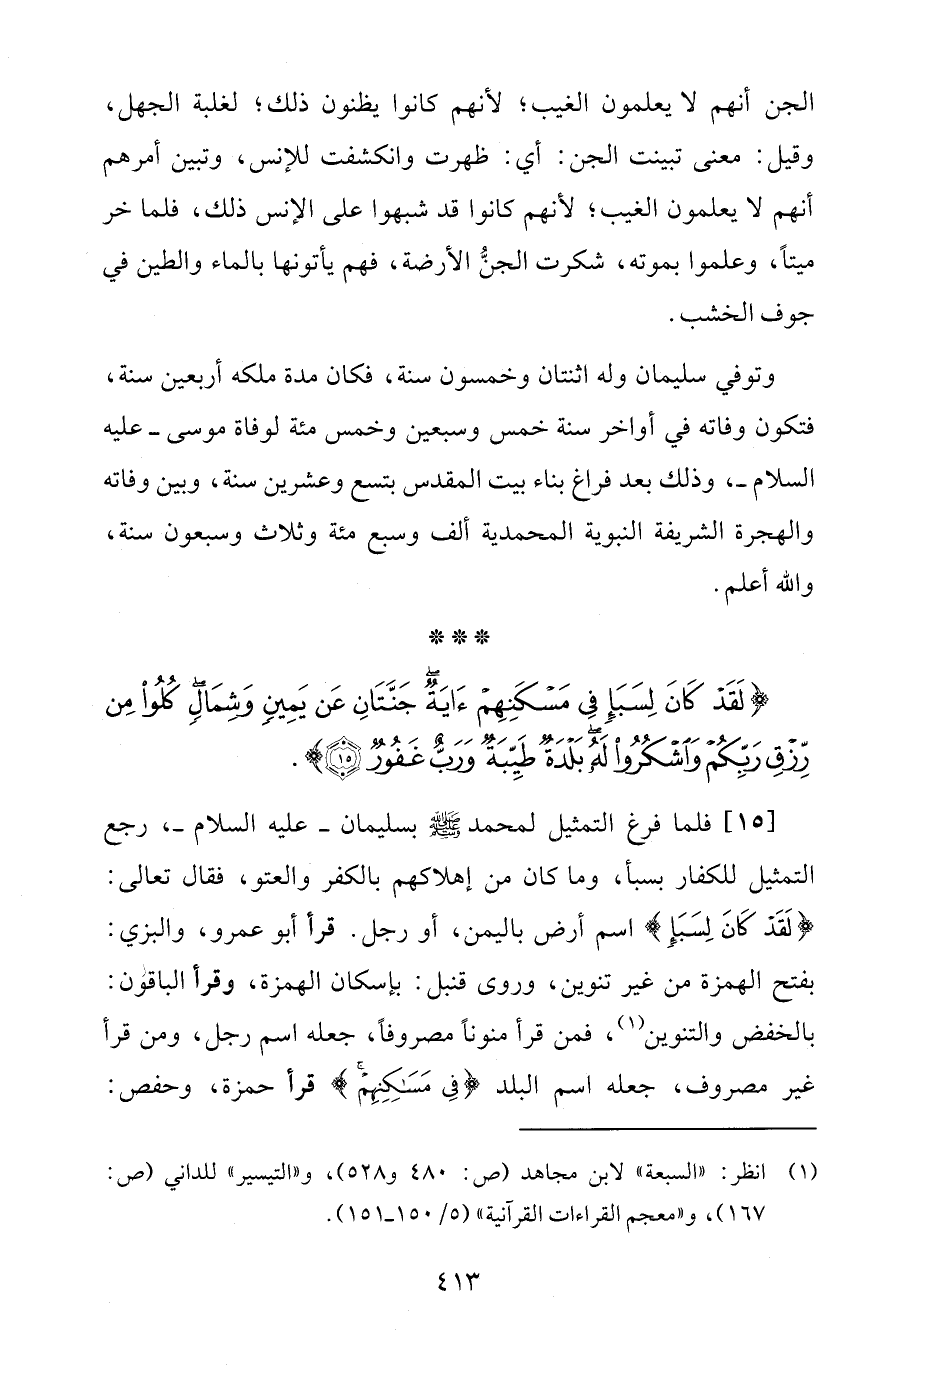 الجن أنهم لا يعلمون الغيب؛ لأنهم كانوا يظنون ذلك؛ لغلبة الجهل،
وقيل: معنى تبينت الجن: أي: ظهرت وانكشفت للإنس، وتبين أمرهم
أنهم لا يعلمون الغيب؛ لأنهم كانوا قد شبهوا على الإنس ذلك، فلما خر
ميتاً، وعلموا بموته، شكرت الجنُّ الأرضة، فهم يأتونها بالماء والطين في
جوف الخشب.
وتوفي سليمان وله اثنتان وخمسون سنة، فكان مدة ملكه أربعين سنة،
فتكون وفاته في أواخر سنة خمس وسبعين وخمس مئة لوفاة موسى ـ عليه
السلام ـ، وذلك بعد فراغ بناء بيت المقدس بتسع وعشرين سنة، وبين وفاته
والهجرة الشريفة النبوية المحمدية ألف وسبع مئة وثلاث وسبعون سنة،
والله أعلم.
* * *
﴿لَقَدْ كَانَ لِسَبَإٍ فِي مَسْكَنِهِمْ ءَايَةٌ ۖ جَنَّتَانِ عَن يَمِينٍ وَشِمَالٍ ۖ كُلُوا۟ مِن
رِّزْقِ رَبِّكُمْ وَٱشْكُرُوا۟ لَهُۥ ۚ بَلْدَةٌ طَيِّبَةٌ وَرَبٌّ غَفُورٌ ١٥﴾.
[١٥] فلما فرغ التمثيل لمحمد ﷺ بسليمان ـ عليه السلام ـ، رجع
التمثيل للكفار بسبأ، وما كان من إهلاكهم بالكفر والعتو، فقال تعالى:
﴿لَقَدْ كَانَ لِسَبَإٍ﴾ اسم أرض باليمن، أو رجل. قرأ أبو عمرو، والبزي:
بفتح الهمزة من غير تنوين، وروى قنبل: بإسكان الهمزة، وقرأ الباقون:
بالخفض والتنوين(١)، فمن قرأ منوناً مصروفاً، جعله اسم رجل، ومن قرأ
غير مصروف، جعله اسم البلد ﴿فِي مَسَٰكِنِهِمْ﴾ قرأ حمزة، وحفص:
(١) انظر: «السبعة» لابن مجاهد (ص: ٤٨٠ و٥٢٨)، و«التيسير» للداني (ص:
١٦٧)، و«معجم القراءات القرآنية» (٥/ ١٥٠ـ١٥١).
٤١٣